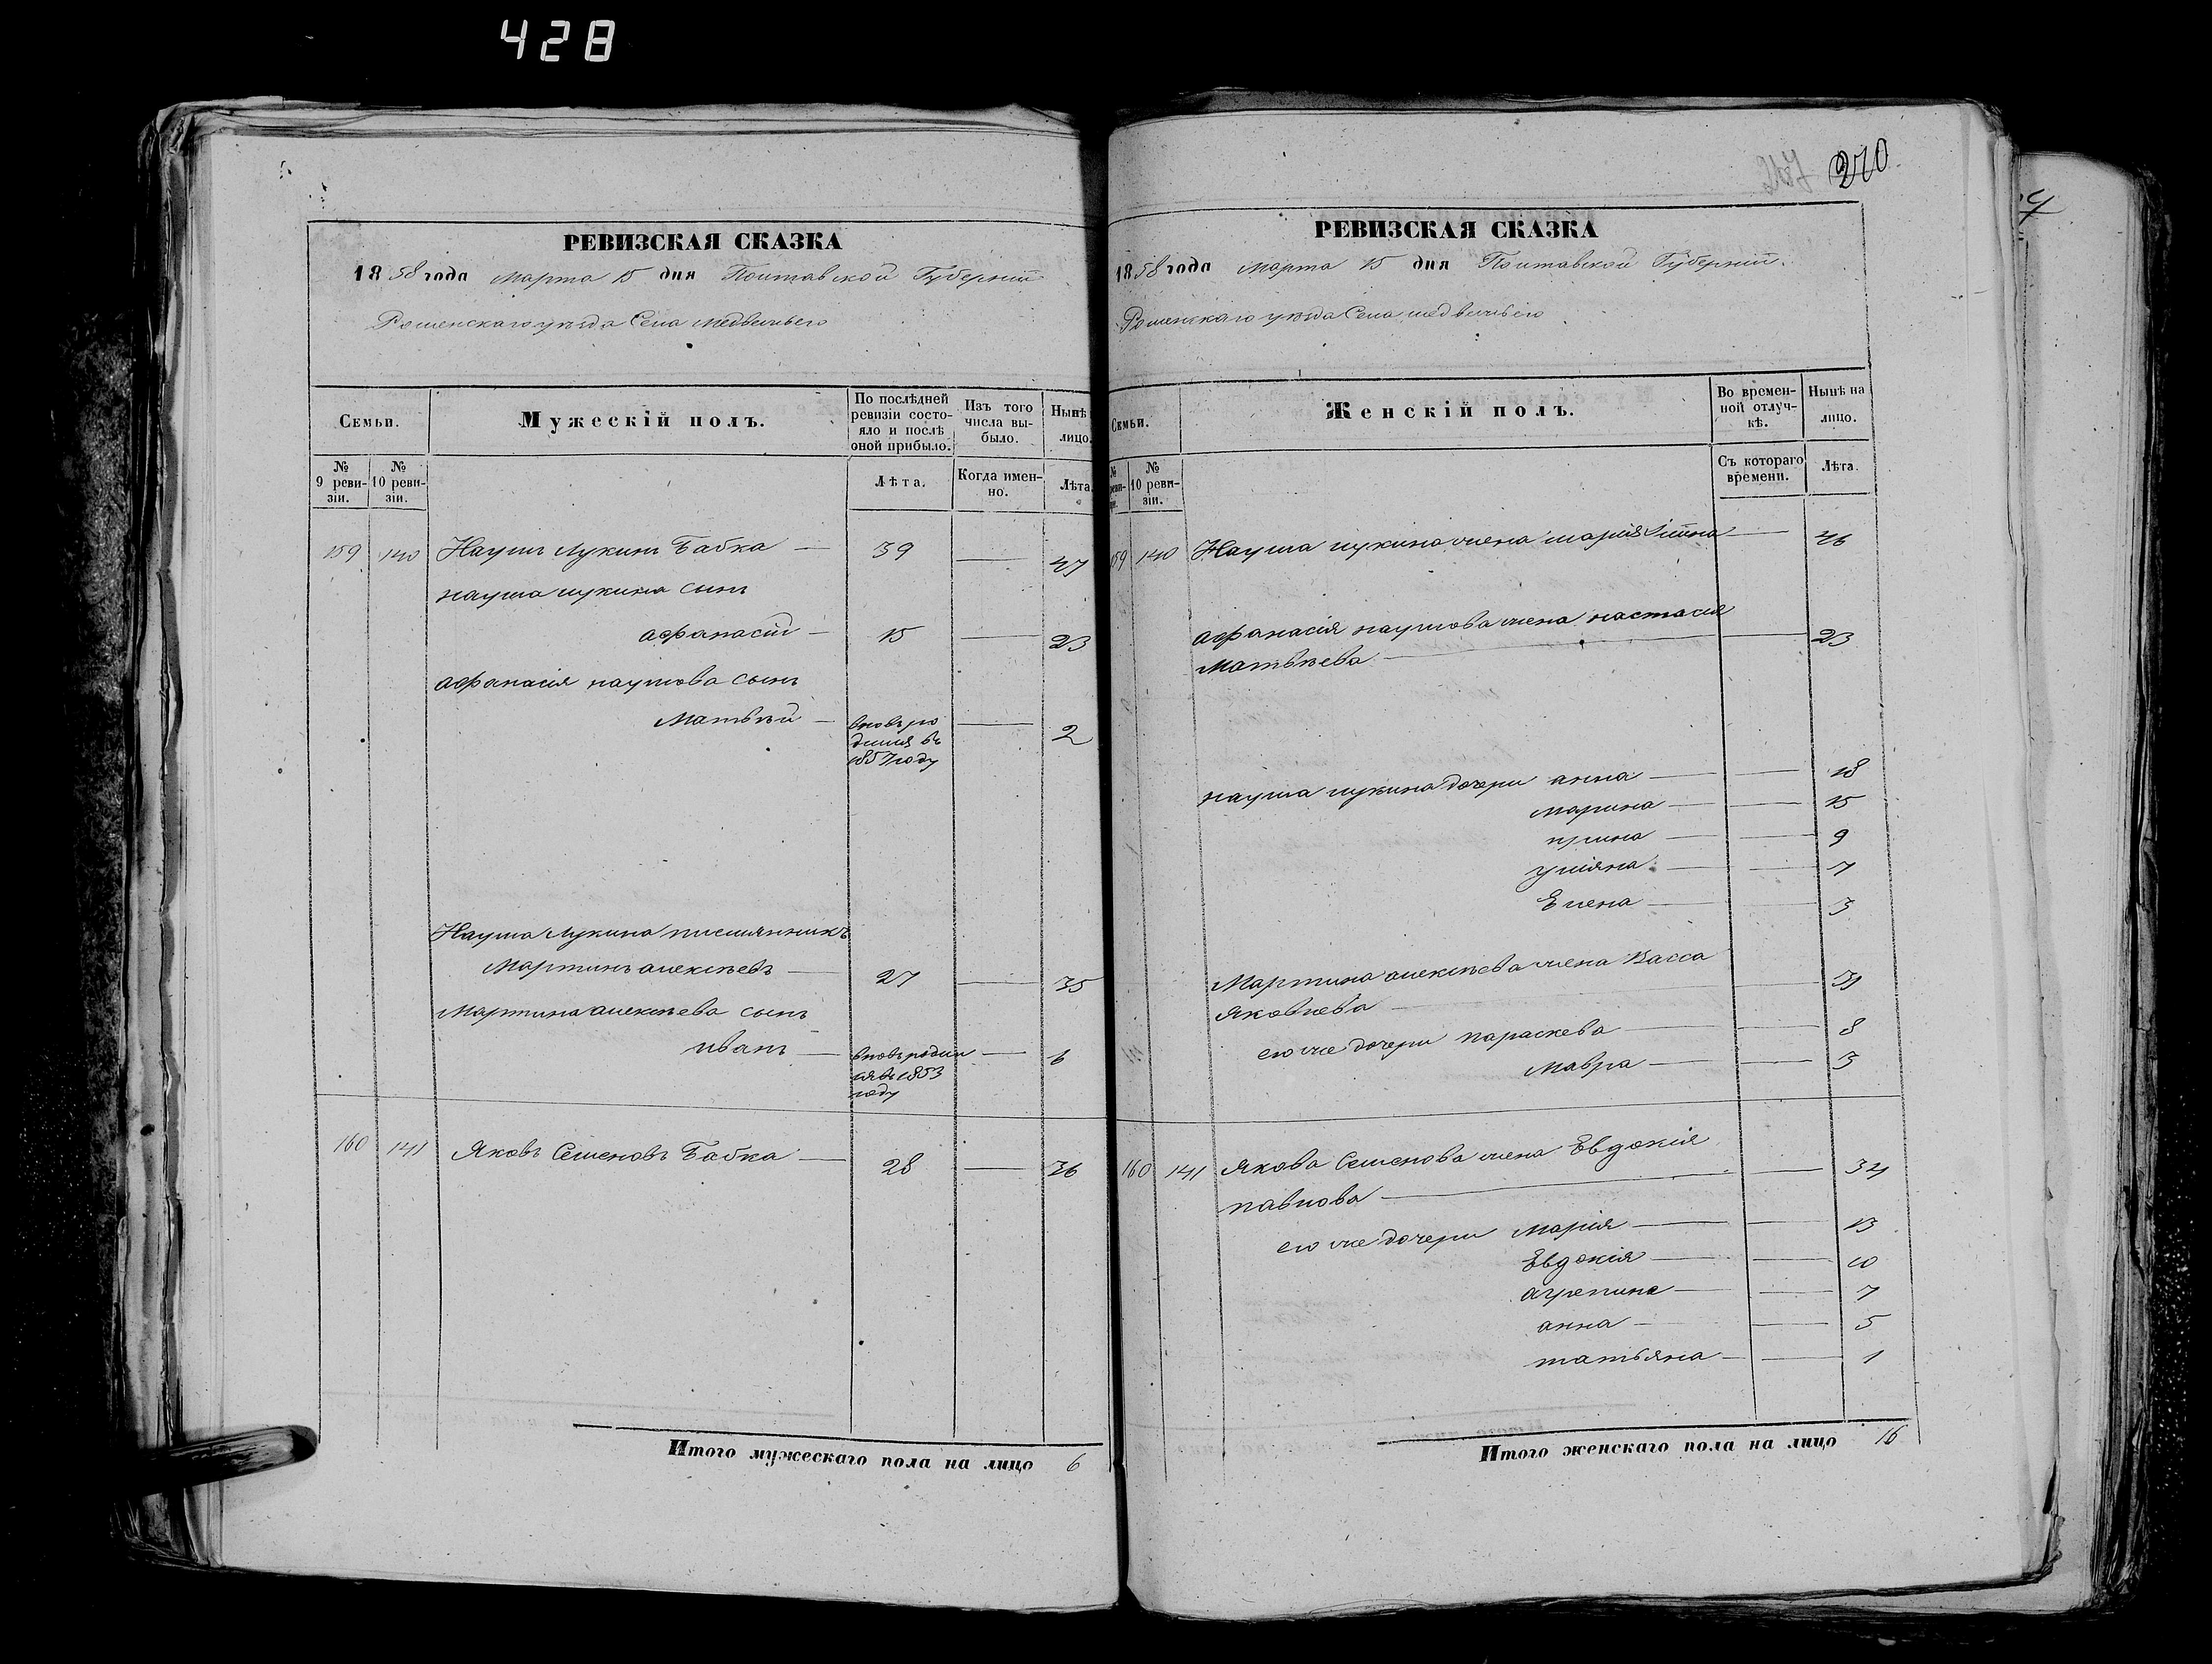 428
270
РЕВИЗСКАЯ СКАЗКА
1858 года Марта 15 дня Полтавской Губерніи
Роменскаго уезда Села Медвежьего
Семьи.
Мужескій полъ.
По послѣдней ревизіи состо-
яло и послѣ
оной прибыло.
Изъ того
числа вы-
было.
Нынѣ
лицо.
№
9 реви-
зіи.
№
10 реви-
зіи.
Лѣта.
Когда имен-
но.
Лѣта
159 140 Наумъ Лукинъ Бабка — 39 — 47
наума лукина сынъ
афанасій — 15 — 23
афанасія наумова сынъ
Матвѣй — вновь ро — 2
дился въ
1857 году
Наума Лукина племянникъ
Мартинъ алексѣевъ — 27 — 35
Мартина алексѣева сынъ
иванъ — вновь родил — 6
ся въ 1853
году
160 141 Яковъ Семеновъ Бабка — 28 — 36
Итого мужескаго пола на лицо 6
РЕВИЗСКАЯ СКАЗКА
1858 года Марта 15 дня Полтавской Губерніи.
Роменскаго уезда Села медвежьего
Семьи.
Женскій полъ.
Во времен-
ной отлуч-
кѣ.
Нынѣ на
лицо.
№
10 реви-
зіи.
Съ котораго
времени.
Лѣта.
59 140 Наума лукина жена марія — 46
афанасія наумова жена настасия — 23
Матвѣева —
наума лукина дочери анна — — 18
марина — — 15
ирина — — 9
улияна — — 7
Елена — — 3
Мартина алексѣева жена Васса — 31
Яковлева —
его же дочери параскева — — 8
мавра — — 3
160 141 Якова Семенова жена Евдокія — 34
павлова —
его же дочери Марія — — 13
Евдокія — — 10
агрепина — — 7
анна — — 5
татьяна — — 1
Итого женскаго пола на лицо 16